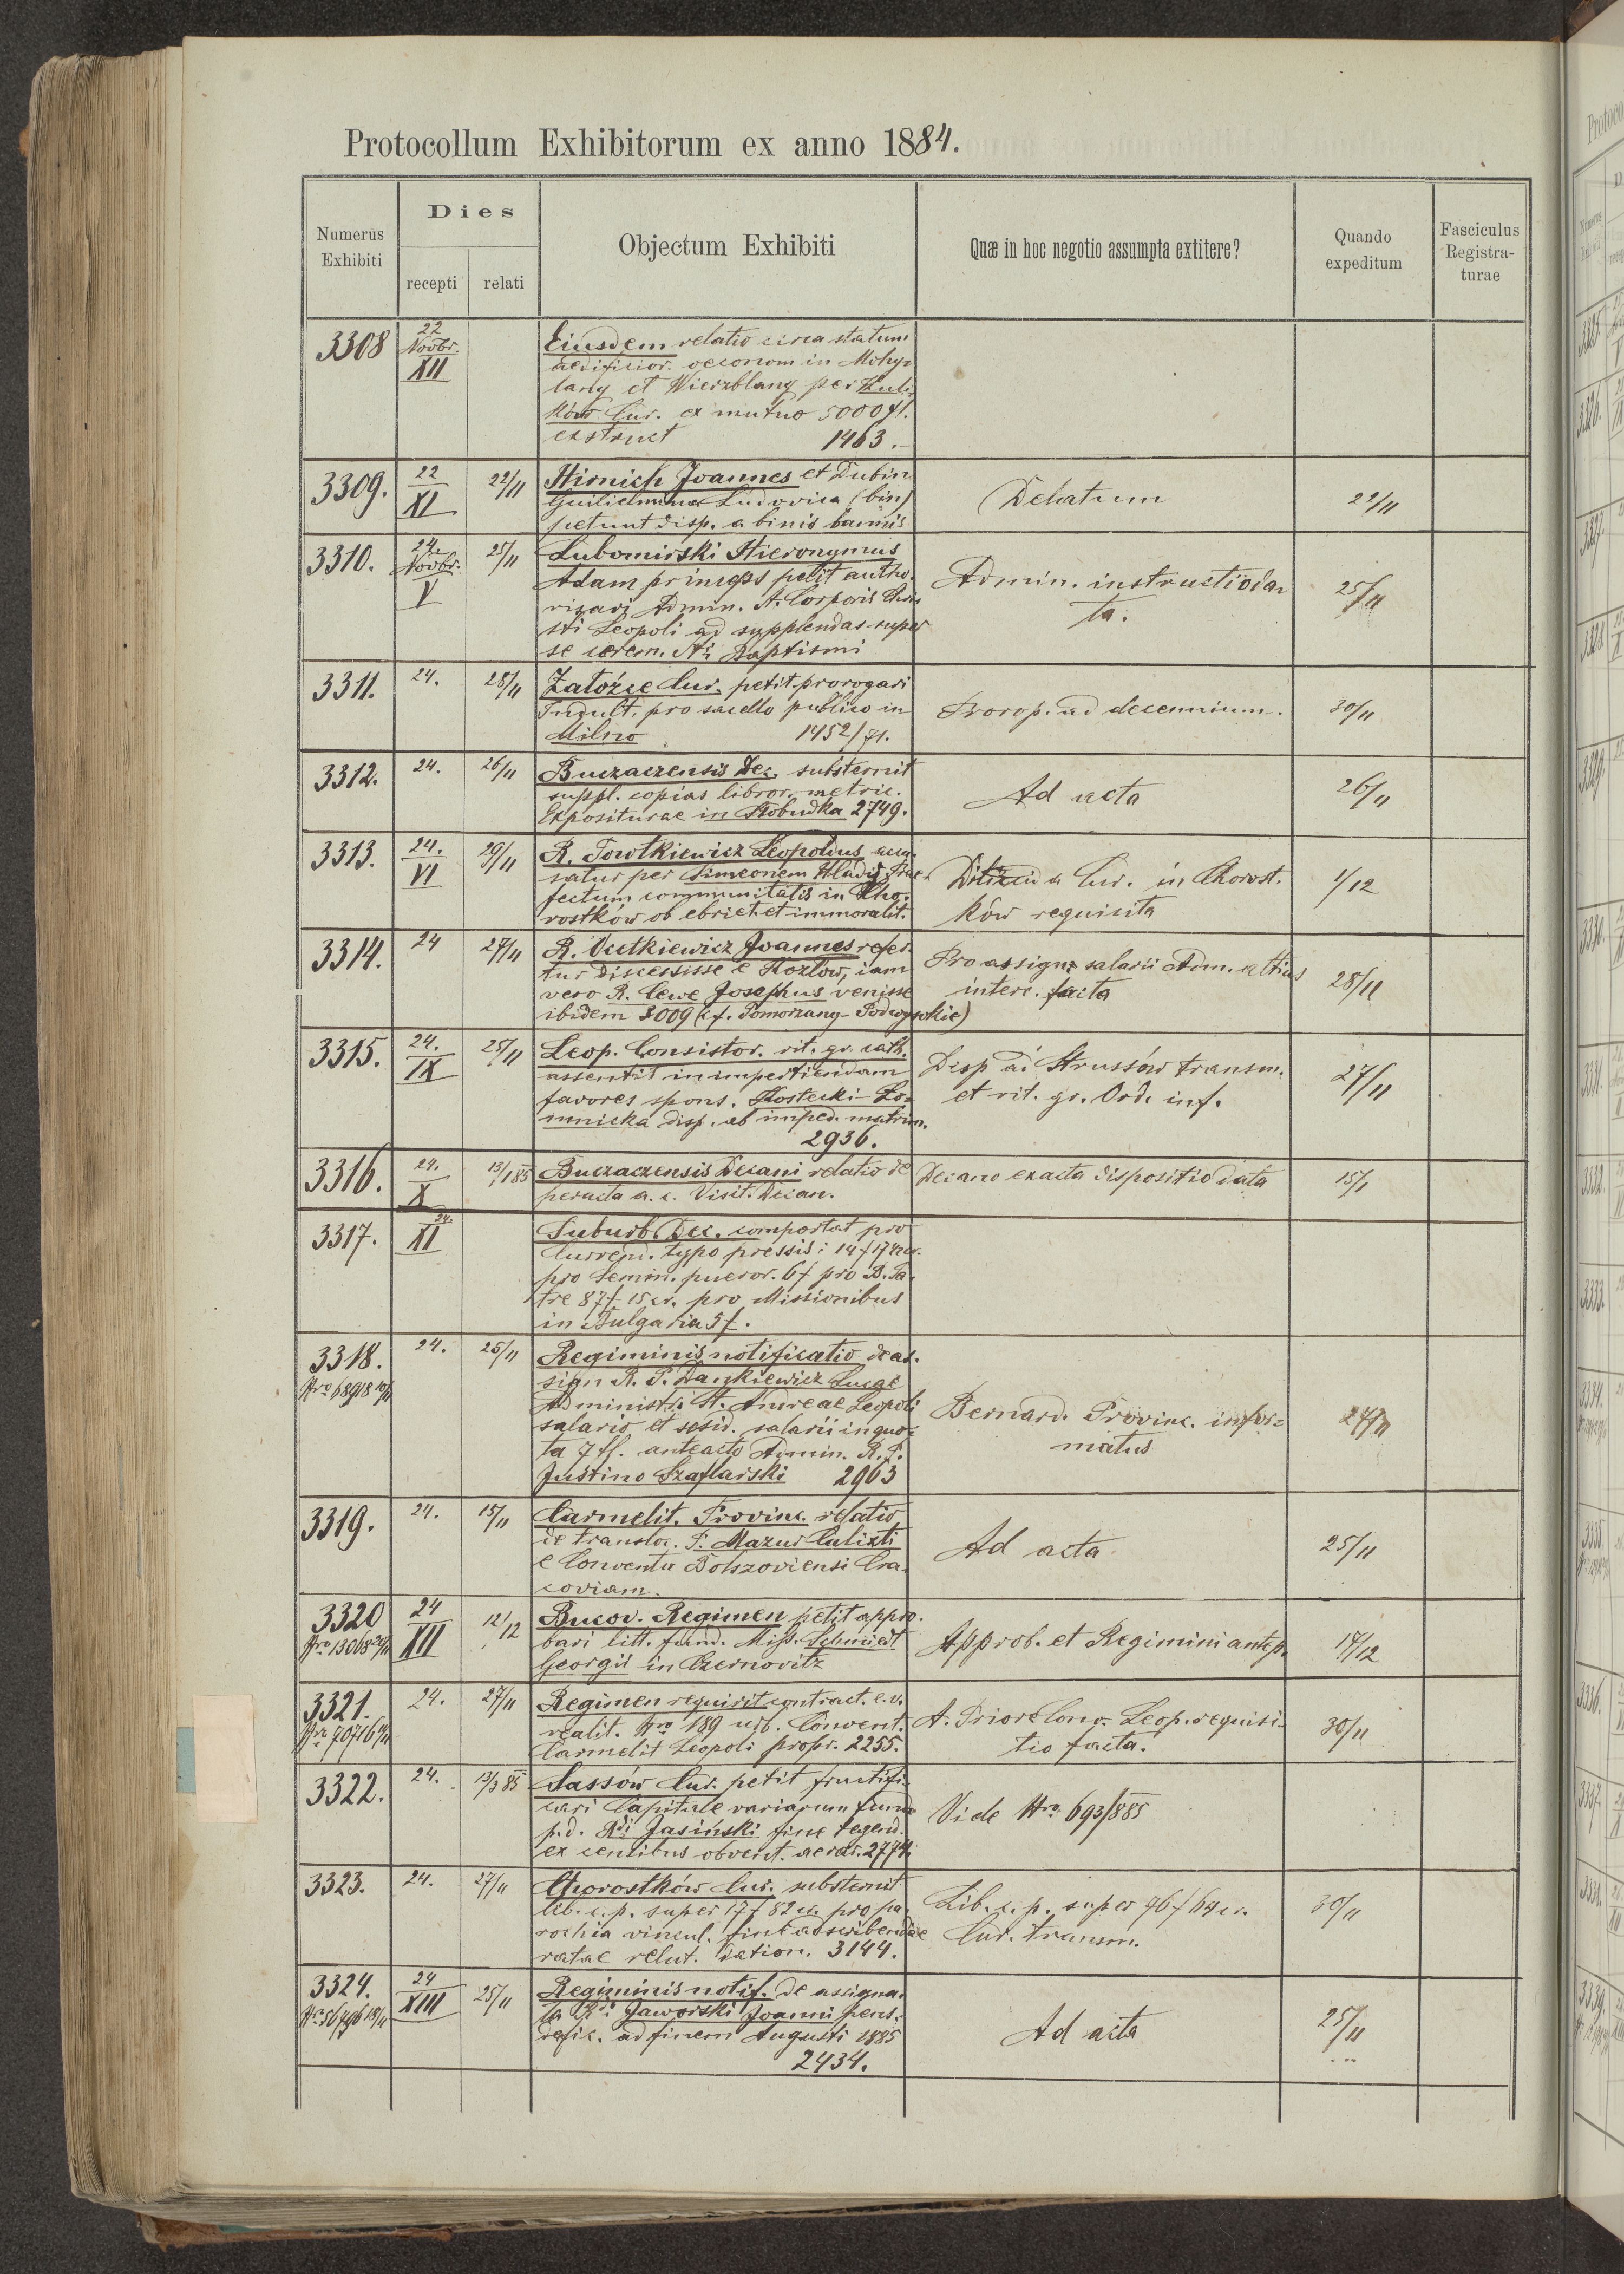 Protocollum Exhibitorum ex anno 1884.
Numerus Exhibiti
Dies
recepti
relati
Objectum Exhibiti
Quæ in hoc negotio assumpta extitere?
Quando expeditum
Fasciculus Registra-turae
3308
22 Novbr. XII
Eiusdem relatio circa statum
aedificior. oeconom in Mohy-
lany et Wierzblany per Kuli-
ków Cur. ex mutuo 5000 fl.
exstruct 1463.
3309.
22 XI
22/11
Hirnich Joannes et Dubin
Guilielmina Ludovica (bin)
petunt disp. a binis bannis
Delatum
22/11
3310.
24. Novbr. V
25/11
Lubomirski Hieronymus
Adam princeps petit autho-
risari Admin. A. Corporis Chri
sti Leopoli ad supplendas super
se cerem. Sti Baptismi
Admin. instructio da
ta.
25/11
3311.
24.
28/11
Załośce Cur. petit prorogari
Indult. pro sacello publico in
Milno 1452/71.
Prorog. ad decennium.
30/11
3312.
24.
26/11
Buczaczensis Dec. substernit
suppl. copias libror. metric.
Expositurae in Słobudka 2749.
Ad acta
26/11
3313.
24. VI
29/11
R. Towtkiewicz Leopoldus accu-
satur per Simeonem Hladij Prae-
fectum communitatis in Cho-
rostków ob ebriet. et immoralit.
Cur. in Chorost.
ków requisita
1/12
3314.
24
27/11
R. Wutkiewicz Joannes refer-
tur discessisse e Kozłów, iam
vero R. Cewe Josephus venisse
ibidem 3009 (cf. Pomorzany - Podwysokie)
Pro assign. salarii Adm. altius
interc. facta
28/11
3315.
24. IX
25/11
Leop. Consistor. rit. gr. cath.
assentit in impertiendam
favores spons. Kostecki - Ło-
mnicka disp. ab imped. matrim.
2936.
Disp ad Strussów transm.
et rit. gr. Ord. inf.
27/11
3316.
24. X
13/1 85
Buczaczensis Decani relatio de
peracta a. c. Visit. Decan.
Decano exacta dispositio data
15/1
3317.
24. XI
Suburb. Dec. comportat pro
Currend. typo pressis: 14 f 17 cr.
pro Semin. pueror. 6 f pro S. Pa-
tre 87 f 15 cr. pro Missionibus
in Bulgaria 5 f.
3318.
Nro 68918 10/11
24.
25/11
Regiminis notificatio de as-
sign R. P. Dankiewicz Lucae
Administri St. Andreae Leopoli
salario et resid. salarii in quo-
ta 7 fl. anteacto Admin. R. P.
Justino Szaflarski 2963
Bernard. Provinc. infor-
matus
27/11
3319.
24.
15/11
Carmelit. Provinc. relatio
de transloc. P. Mazur Calixti
e Conventu Bołszoviensi Cra-
coviam.
Ad acta
25/11
3320
24 XII
12/12
Bucov. Regimen petit appro-
bari litt. fund. Miss. Schmiedt
Georgii in Czernovitz
Approb. et Regimini antep.
17/12
3321.
Nro 70716
24.
27/11
Regimen requirit contract. e. v.
realit. Nro 189 urb. Convent.
Carmelit Leopoli propr. 2255.
A. Priore Conv. Leop. requisi-
tio facta.
30/11
3322.
24.
13/3 85
Sassów Cur. petit fructifi-
cari Capitale variarum fund
p. d. Rdi Jasiński fine tegend.
ex censibus obvent. aerar. 2774.
Vide Nro 693/885
3323.
24.
27/11
Chorostków Cur. substernit
lib. c. p. super 17 f 82 cr. pro pa-
rochia vincul. fine adscribendae
ratae relut. sation. 3144.
Lib. c. p. super 96 f 64 cr.
Cur. transm.
30/11
3324.
24 XIII
25/11
Regiminis notif. de assigna-
ta Rdi Jaworski Joanni pens.
defic. ad finem Augusti 1885
2434.
Ad acta
25/11